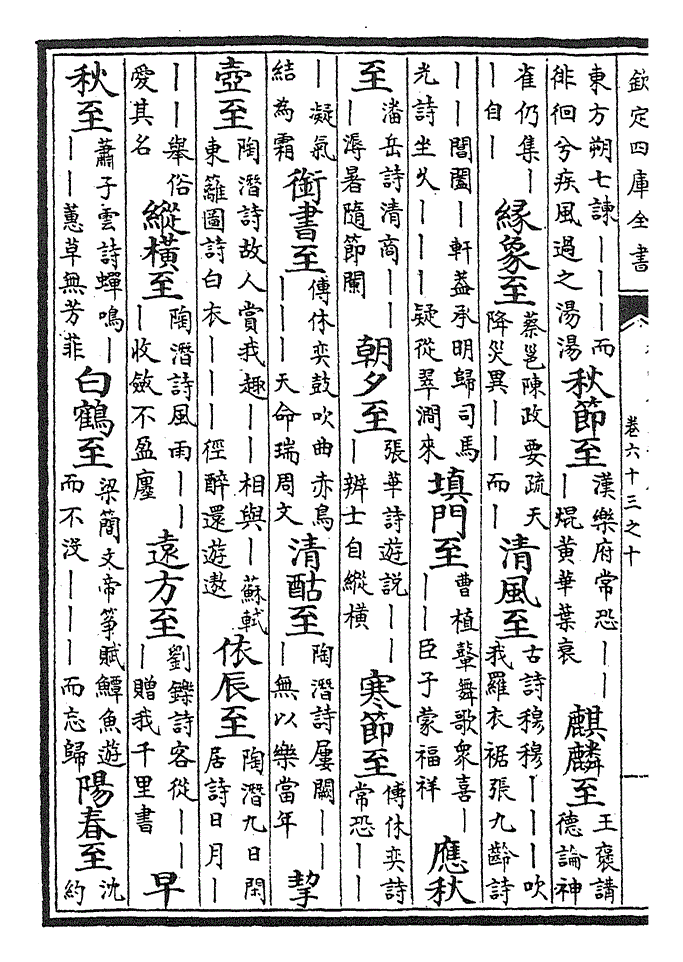 欽定四庫全書
卷六十三之十
東方朔七諫｜｜｜而徘徊兮疾風過之湯湯 秋節至 漢樂府常恐｜｜｜焜黃華葉衰 麒麟至 王褒講德論神
雀仍集｜｜自｜ 緣象至 蔡邕陳政要疏天降災異｜｜而｜ 清風至 古詩穆穆｜｜｜吹我羅衣裾張九齡詩
｜｜｜閶闔｜軒蓋承明歸司馬光詩坐久｜｜｜疑從翠澗來 填門至 曹植鼙舞歌衆喜｜｜｜臣子蒙福祥 應秋
至 潘岳詩清商｜｜｜溽暑隨節闌 朝夕至 張華詩遊說｜｜｜辨士自縱橫 寒節至 傅休奕詩常恐｜｜
｜凝氣結為霜 銜書至 傅休奕鼓吹曲赤烏｜｜｜天命瑞周文 清酤至 陶潛詩屢闕｜｜｜無以樂當年 挈
壺至 陶潛詩故人賞我趣｜｜相與｜蘇軾東籬圖詩白衣｜｜｜徑醉還遊遨 依辰至 陶潛九日閑居詩日月｜
｜｜舉俗愛其名 縱橫至 陶潛詩風雨｜｜｜收斂不盈廛 遠方至 劉鑠詩客從｜｜｜贈我千里書 早
秋至 蕭子雲詩蟬鳴｜｜｜蕙草無芳菲 白鶴至 梁簡文帝箏賦鱏魚遊而不没｜｜｜而忘歸 陽春至 沈約